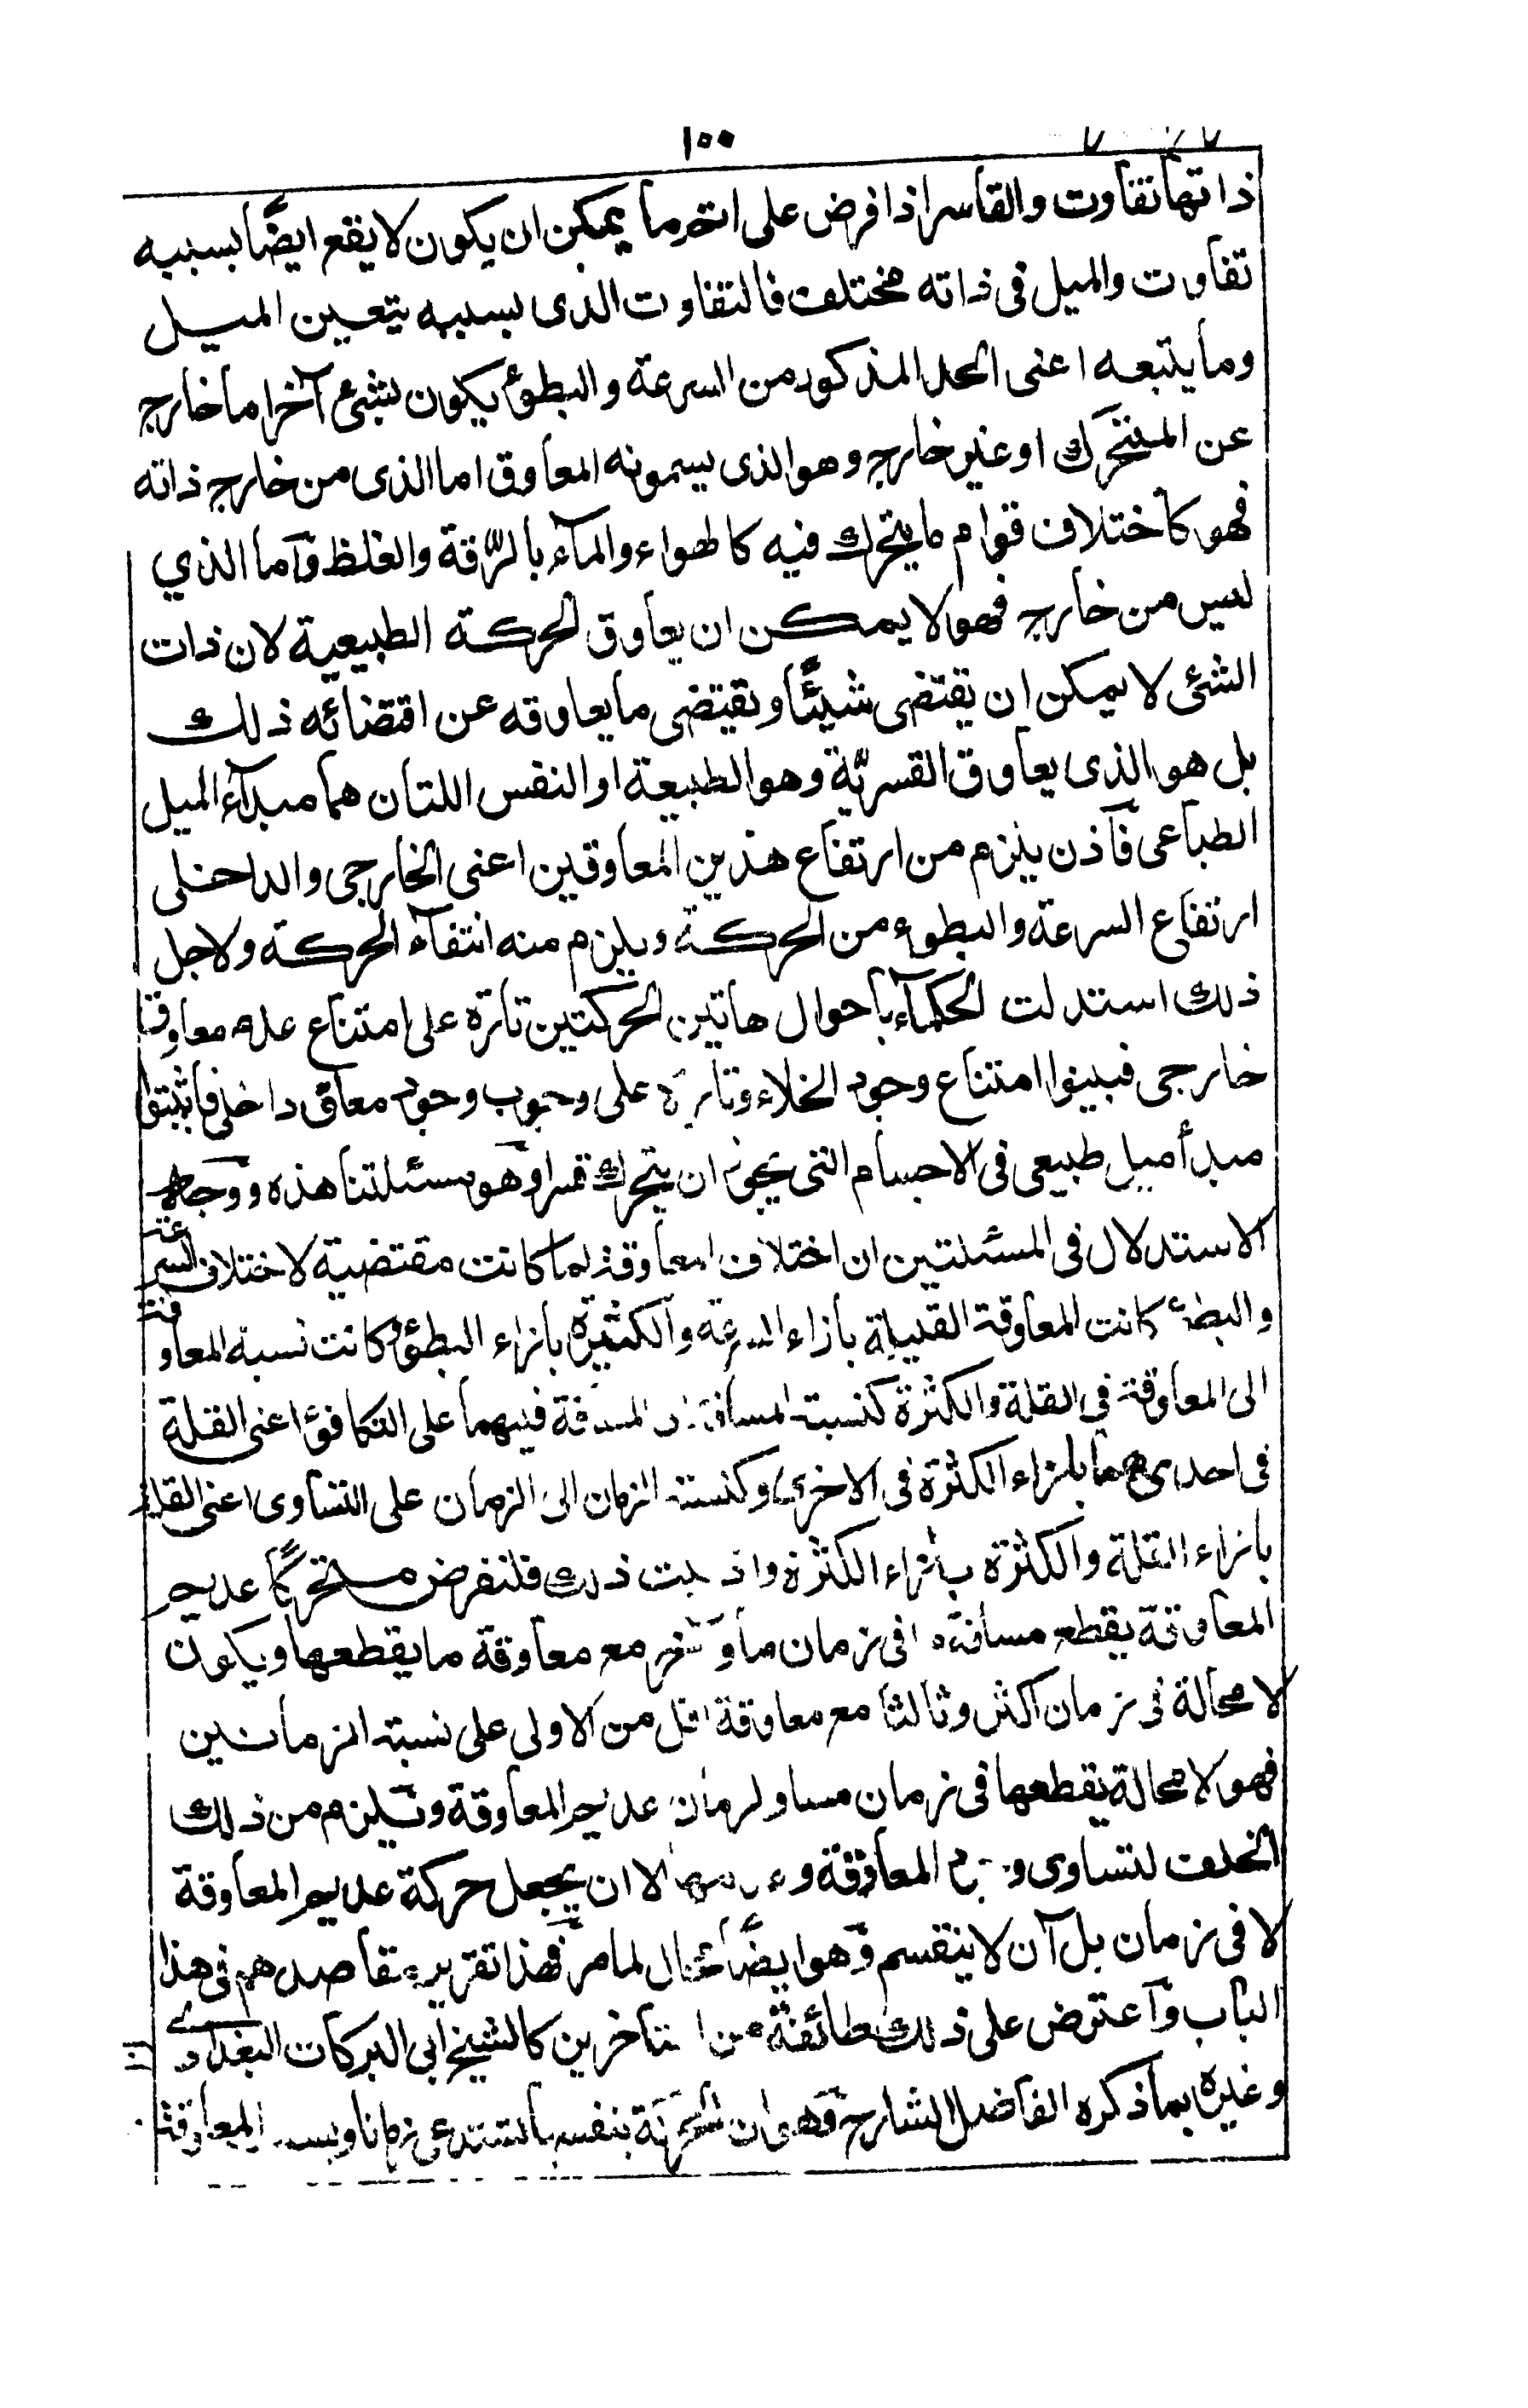 ١٠٠
ذاتها تفاوت والقاسر اذا فرض على اتم ما يمكن ان يكون لا يقع ايضًا بسببه
تفاوت والميل فى ذاته مختلف فالتفاوت الذى بسببه يتعين الميل
وما يتبعه اعنى الحد المذكور من السرعة والبطوء يكون بشئ آخر اما خارج
عن المتحرك او غير خارج وهو الذى يسمونه المعاوق اما الذى من خارج ذاته
فهو كاختلاف قوام ما يتحرك فيه كالهواء والمآء بالرّقة والغلظ وآما الذي
ليس من خارج فهو لا يمكن ان يعاوق الحركة الطبيعية لان ذات
الشئ لا يمكن ان يقتضى شيئًا و يقتضى ما يعاوقه عن اقتضائه ذلك
بل هو الذى يعاوق القسريّة وهو الطبيعة او النفس اللتان هما مبدآء الميل
الطباعى فآذن يلزم من ارتفاع هذين المعاوقين اعنى الخارجى والداخلى
ارتفاع السرعة والبطوء من الحركة ويلزم منه انتفآء الحركة ولاجل
ذلك استدلت الحكمآء باحوال هاتين الحركتين تارة على امتناع عدم معاوق
خارجى فبينوا امتناع وجود الخلاء وتارة على وجوب وجود معاوق داخلى فاثبتوا
مبدأ ميل طبيعى فى الاجسام التى يجوز ان يتحرك قسرا وهو مسئلتنا هذه ووجه
الاستدلال فى المسئلتين ان اختلاف المعاوقة لما كانت مقتضية لاختلاف السرعة
والبطئ كانت المعاوقة القليلة بازاء السرعة والكثيرة بازاء البطئ وكانت نسبة المعاوقة
الى المعاوقة فى القلة والكثرة كنسبة المسافة الى المسافة فيهما على التكافؤ اعنى القلة
فى احدىهما بازاء الكثرة فى الاخرى وكنسبة الزمان الى الزمان على التساوى اعنى القلة
بازاء القلة والكثرة بازاء الكثرة واذ ثبت ذلك فلنفرض متحركًا عديم
المعاوقة يقطع مسافة ما فى زمان ما وآخر مع معاوقة ما يقطعها ويكون
لا محالة فى زمان اكثر وثالثا مع معاوقة اقل من الاولى على نسبة الزمانين
فهو لا محالة يقطعها فى زمان مساو لزمان عديم المعاوقة ويلزم من ذلك
الخلف لتساوى المعاوقة الا ان يجعل حركة عديم المعاوقة
لا فى زمان بل آن لا ينقسم وهو ايضًا محال لما مر فهذا تقرير مقاصدهم فى هذا
الباب وآعترض على ذلك طائفة من المتاخرين كالشيخ ابى البركات البغدادى
وغيره بما ذكره الفاضل الشارح وهو ان الحركة بنفسها تستدعى زمانا وبسبب المعاوقة